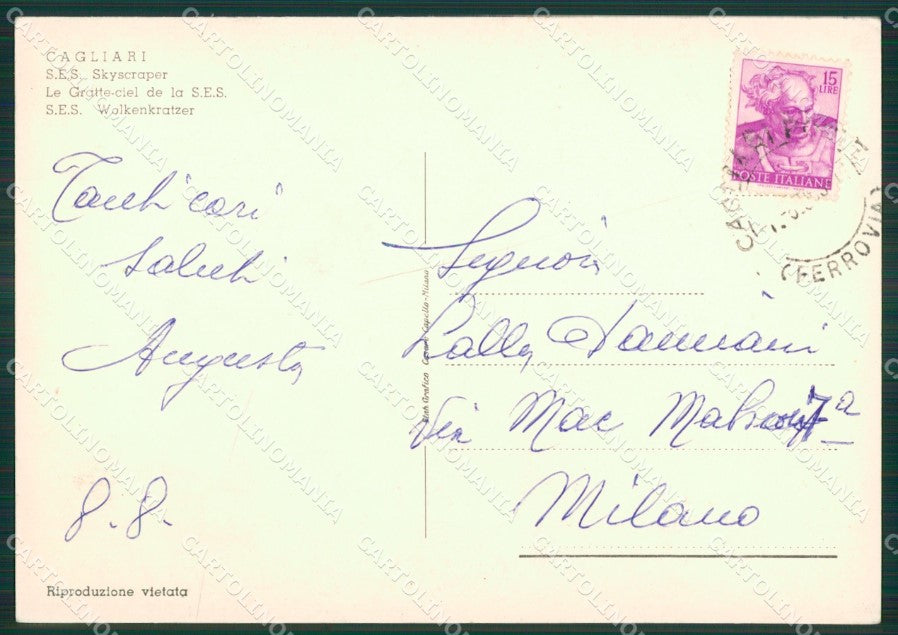 CAGLIARI
S.E.S. Skyscraper
Le Gratte-ciel de la S.E.S.
S.E.S. Wolkenkratzer
15
LIRE
POSTE ITALIANE
CAGLIARI
FERROVIA
Tanti cari
saluti
Augusta
8.8.
Signora
Lalla
Via Mac Mahon 7a
Milano
Riproduzione vietata
CARTOLINOMANIA